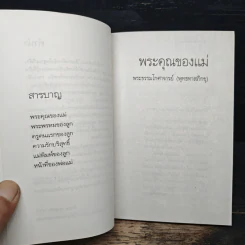 สารบาญ
พระคุณของแม่
พระพรหมของลูก
ครูคนแรกของลูก
ความรักบริสุทธิ์
แม่พิมพ์ของลูก
หน้าที่ของพ่อแม่
พระคุณของแม่
พระธรรมโกศาจารย์ (พุทธทาสภิกขุ)